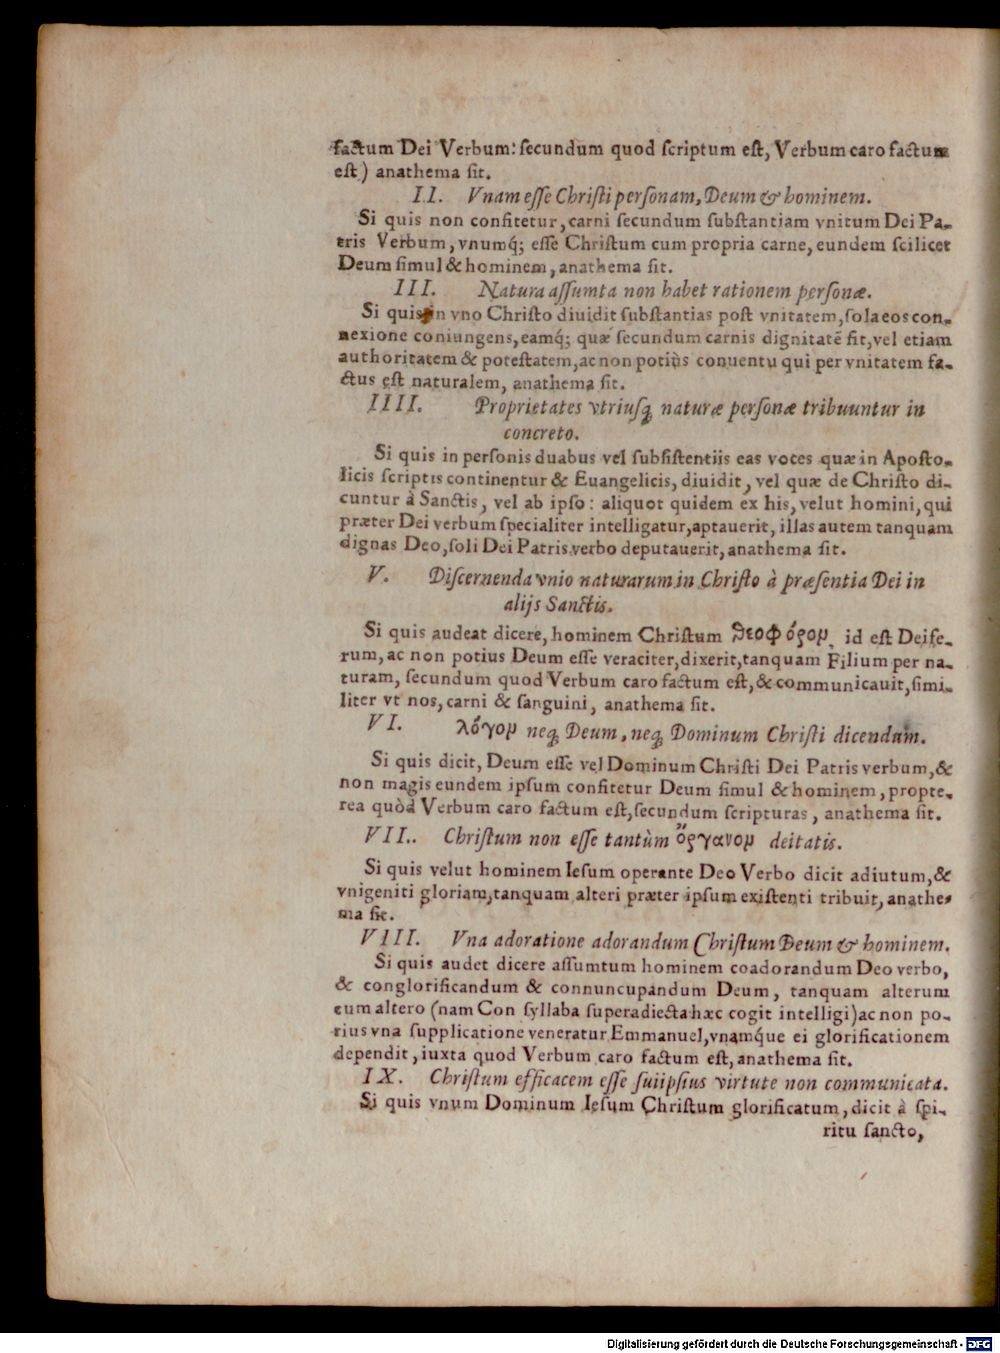 factum Dei Verbum: ſecundum quod ſcriptum eſt, Verbum caro factum
eſt) anathema ſit.
II. Vnam eſſe Chriſti perſonam, Deum & hominem.
Si quis non confitetur, carni ſecundum ſubſtantiam vnitum Dei Pa-
tris Verbum, vnumq́; eſſe Chriſtum cum propria carne, eundem ſcilicet
Deum ſimul & hominem, anathema ſit.
III. Natura aſſumta non habet rationem perſonæ.
Si quis in vno Chriſto diuidit ſubſtantias poſt vnitatem, ſola eos con-
nexione coniungens, eamq́; quæ ſecundum carnis dignitatē ſit, vel etiam
authoritatem & poteſtatem, ac non potiùs conuentu qui per vnitatem fa-
ctus eſt naturalem, anathema ſit.
IIII. Proprietates vtriuſq; naturæ perſonæ tribuuntur in
concreto.
Si quis in perſonis duabus vel ſubſiſtentiis eas voces quæ in Apoſto-
licis ſcriptis continentur & Euangelicis, diuidit, vel quæ de Chriſto di-
cuntur à Sanctis, vel ab ipſo: aliquot quidem ex his, velut homini, qui
præter Dei verbum ſpecialiter intelligatur, aptauerit, illas autem tanquam
dignas Deo, ſoli Dei Patris verbo deputauerit, anathema ſit.
V. Diſcernenda vnio naturarum in Chriſto à præſentia Dei in
alijs Sanctis.
Si quis audeat dicere, hominem Chriſtum θεοφόρομ, id eſt Deife-
rum, ac non potius Deum eſſe veraciter, dixerit, tanquam Filium per na-
turam, ſecundum quod Verbum caro factum eſt, & communicauit, ſimi-
liter vt nos, carni & ſanguini, anathema ſit.
VI. λόγομ neq; Deum, neq; Dominum Chriſti dicendum.
Si quis dicit, Deum eſſe vel Dominum Chriſti Dei Patris verbum, &
non magis eundem ipſum confitetur Deum ſimul & hominem, propte-
rea quòd Verbum caro factum eſt, ſecundum ſcripturas, anathema ſit.
VII.. Chriſtum non eſſe tantùm ὄργανομ deitatis.
Si quis velut hominem Ieſum operante Deo Verbo dicit adiutum, &
vnigeniti gloriam, tanquam alteri præter ipſum exiſtenti tribuit, anathe-
ma ſit.
VIII. Vna adoratione adorandum Chriſtum Deum & hominem.
Si quis audet dicere aſſumtum hominem coadorandum Deo verbo,
& conglorificandum & connuncupandum Deum, tanquam alterum
cum altero (nam Con ſyllaba ſuperadiecta hæc cogit intelligi) ac non po-
tius vna ſupplicatione veneratur Emmanuel, vnamq́ue ei glorificationem
dependit, iuxta quod Verbum caro factum eſt, anathema ſit.
IX. Chriſtum efficacem eſſe ſuiipſius virtute non communicata.
Si quis vnum Dominum Ieſum Chriſtum glorificatum, dicit à ſpi-
ritu ſancto,
Digitalisierung gefördert durch die Deutsche Forschungsgemeinschaft - DFG